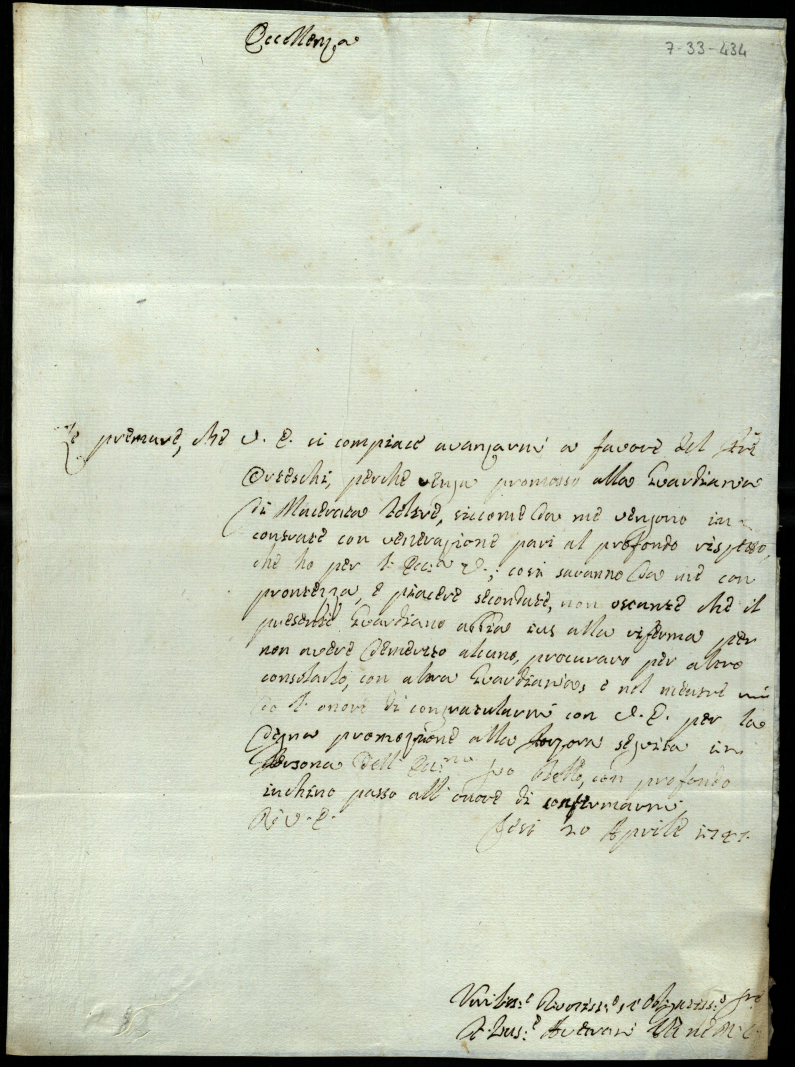 Eccellenza
7-33-434
Le premure, che V. E. si compiace avanzarmi a favore del Pre
perche venga promosso alla Guardiania
di Macerata Feltre, siccome da me vengono in-
contrate con venerazione pari al profondo rispetto,
che ho per l'Ecc:a V.; cosi saranno da me con
prontezza, e piacere secondate, non ostante che il
presente Guardiano abbia ius alla riferma per
non avere demerito alcuno, procuraro per altro
consolarlo, con altra Guardiania, e nel mentre mi
do l'onore di congratularmi con V. E. per la
degna promozione alla seguita in
persona dell' Ecc:mo suo con profondo
inchino passo all'onore di confermarmi
Di V. E.
Jesi 20 Aprile
Umilis:o Devotiss:o, ed Obligatiss:o